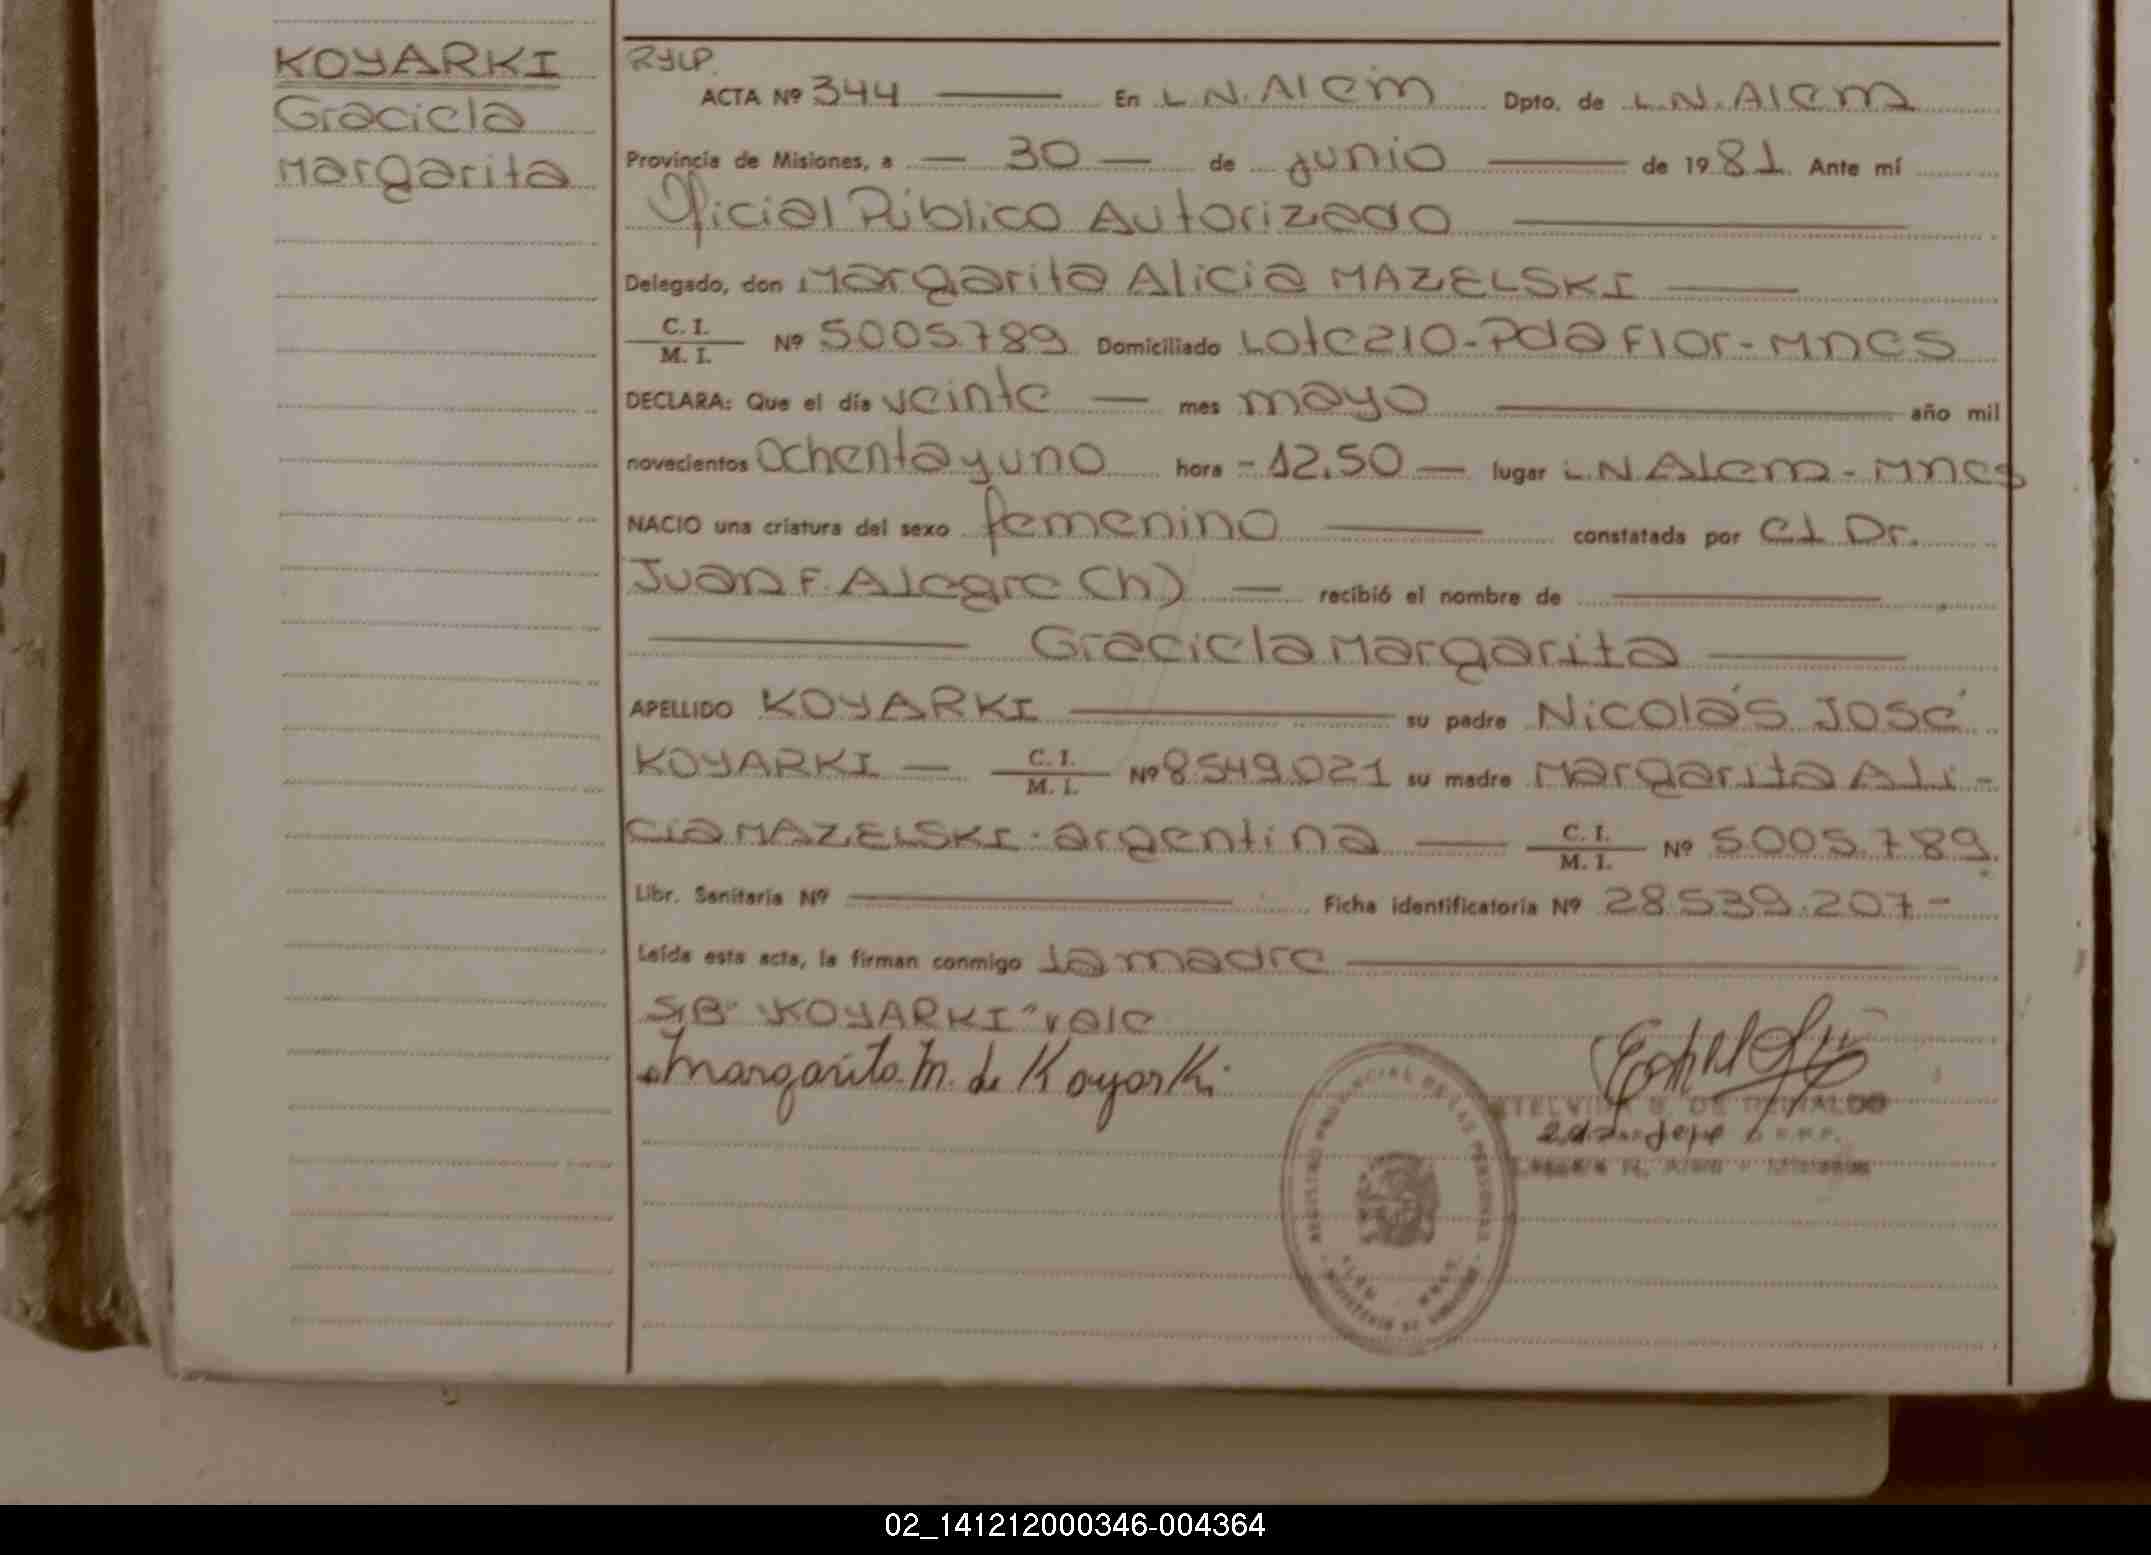 KOYARKI
Graciela
Margarita
RYLP.
ACTA Nº 344 En L N. Alem Dpto. de L. N. Alem
Provincia de Misiones, a 30 de junio de 1981 Ante mí
Oficial Público Autorizado
Delegado, don Margarita Alicia MAZELSKI
C. I.
M. I. Nº 5005789 Domiciliado Lote 210 - Pda Flor - Mnes
DECLARA: Que el día veinte mes mayo año mil
novecientos Ochenta y uno hora - 12.50 lugar L. N Alem - Mnes
NACIO una criatura del sexo femenino constatada por el Dr.
Juan F. Alegre (h) recibió el nombre de
Graciela Margarita
APELLIDO KOYARKI su padre Nicolás José
KOYARKI C. I.
M. I. Nº 8.549.021 su madre Margarita Ali-
cia MAZELSKI - argentina C. I.
M. I. Nº 5005.789.
Libr. Sanitaria Nº Ficha identificatoria Nº 28.539.207 -
Leída esta acta, la firman conmigo la madre
S/B "KOYARKI" vale
Margarita M. de Koyarki
REGISTRO PROVINCIAL DE LAS PERSONAS
MINISTERIO DE GOBIERNO
02_141212000346-004364